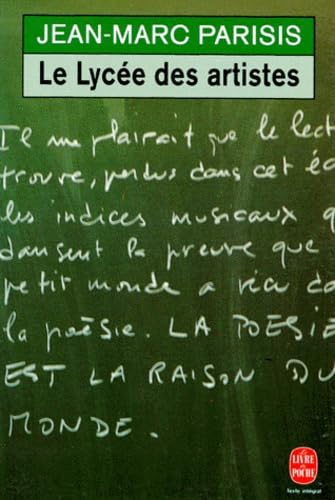 JEAN-MARC PARISIS
Le Lycée des artistes
Il me plairait que le lect
trouve, perdus dans cet éc
les indices musicaux q
dansent la preuve que
petit monde a vécu da
la poésie. LA POÉSIE
EST LA RAISON DU
MONDE.
LE LIVRE
DE
POCHE
Texte intégral